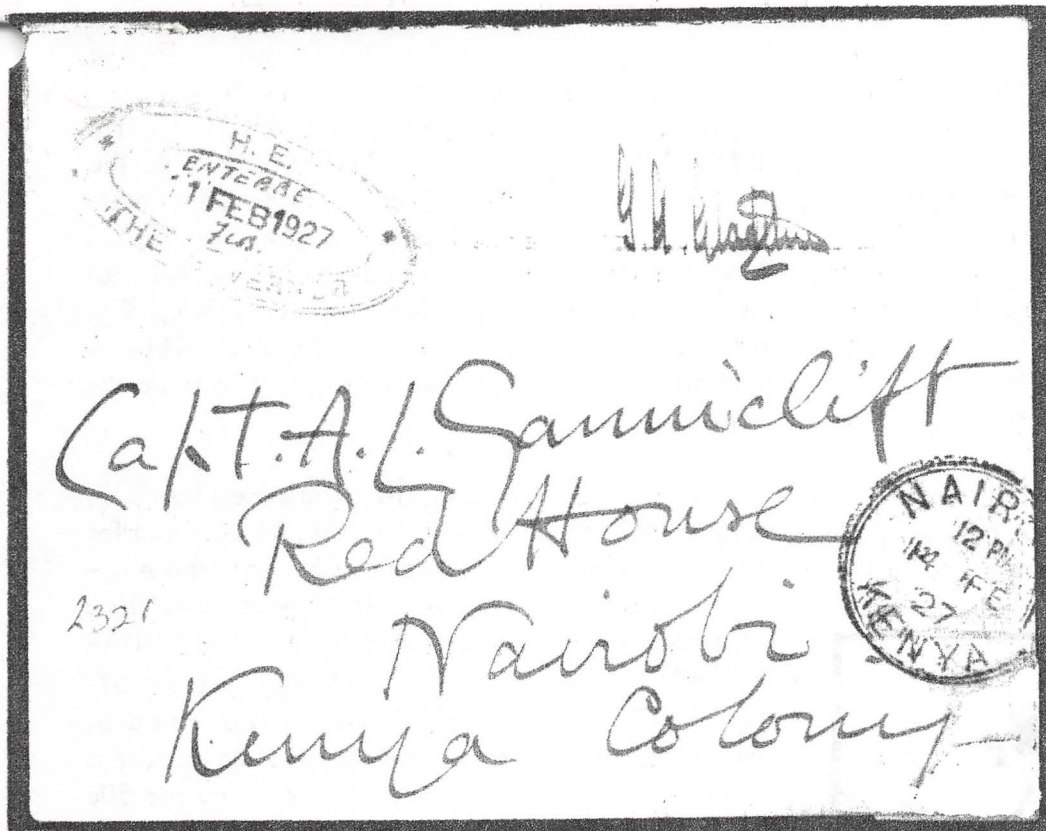 H. E.
ENTEBBE
1 FEB 1927
THE VERNOR
Capt. A. L. Ganniclift
Red House
Nairobi
Kenya Colony
2321
NAIR
12 PM
14 FE
27
KENYA